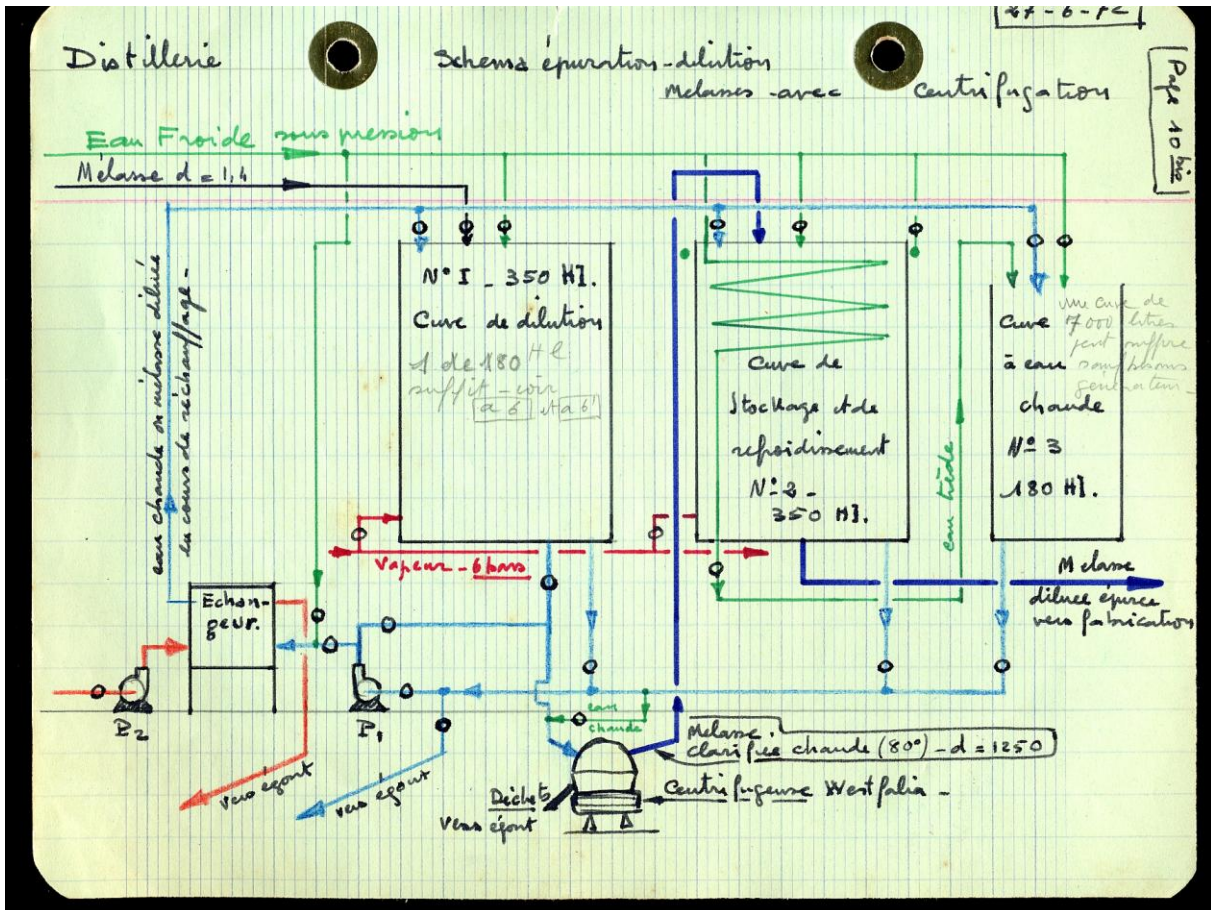 Distillerie
Schema épuration-dilution
Melasses - avec Centrifugation
Page 10 bis
Eau Froide sous pression
Mélasse d = 1,4
eau chaude ou mélasse diluée
en cours de réchauffage -
N° I _ 350 Hl.
Cuve de dilution
1 de 180 Hl
suffit - voir
a 6 et a 6'
Cuve de
Stockage et de
refroidissement
N° 2 -
350 Hl.
Cuve
à eau
chaude
N° 3
180 Hl.
une cuve de
7000 litres
peut suffire
eau tiède
Vapeur - 6 bars
Melasse
diluée épurée
vers fabrication
Echan-
geur.
P2
P1
eau
chaude
Melasse.
clarifiée chaude (80°) - d = 1250
Centrifugeuse Westfalia -
Déchets
vers égout
vers égout
vers égout